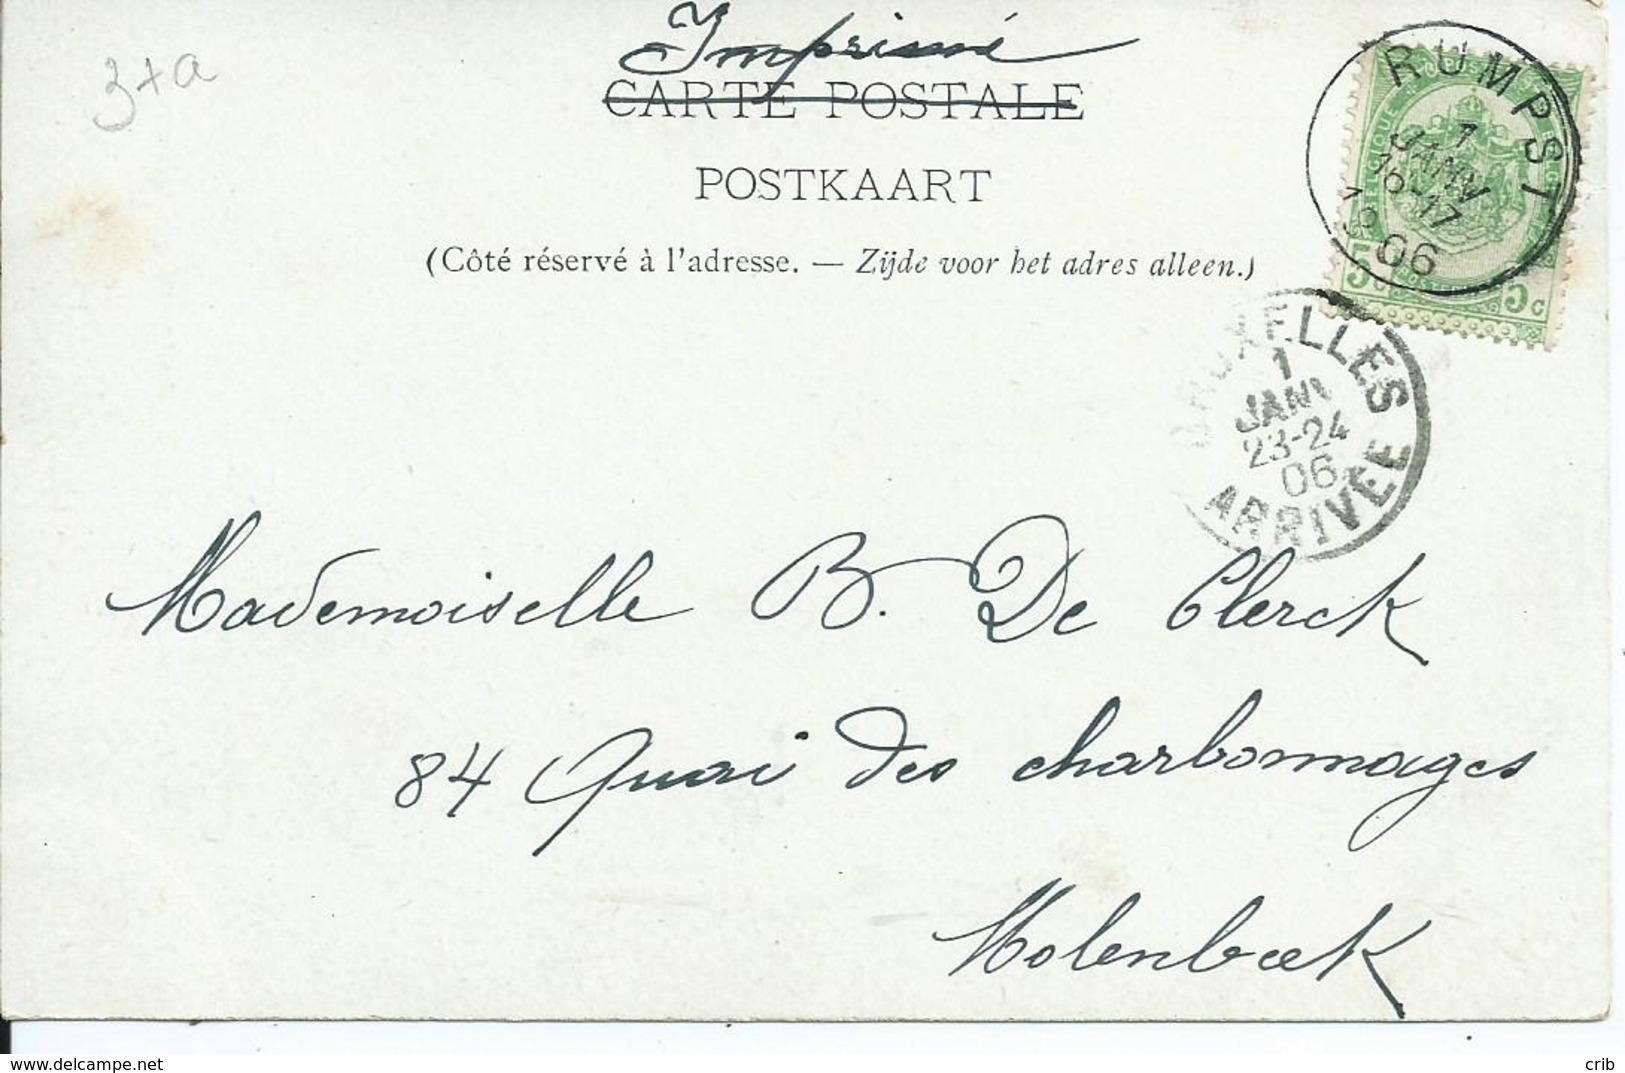 3+a
Imprimé
CARTE POSTALE
POSTKAART
(Côté réservé à l'adresse. — Zijde voor het adres alleen.)
RUMPST
1
JANV
16-17
1906
5c 5c
BRUXELLES
1
JANV
23-24
06
ARRIVÉE
Mademoiselle B. De Clerck
84 Quai des charbonnages
Molenbeek
delcampe.net
crib